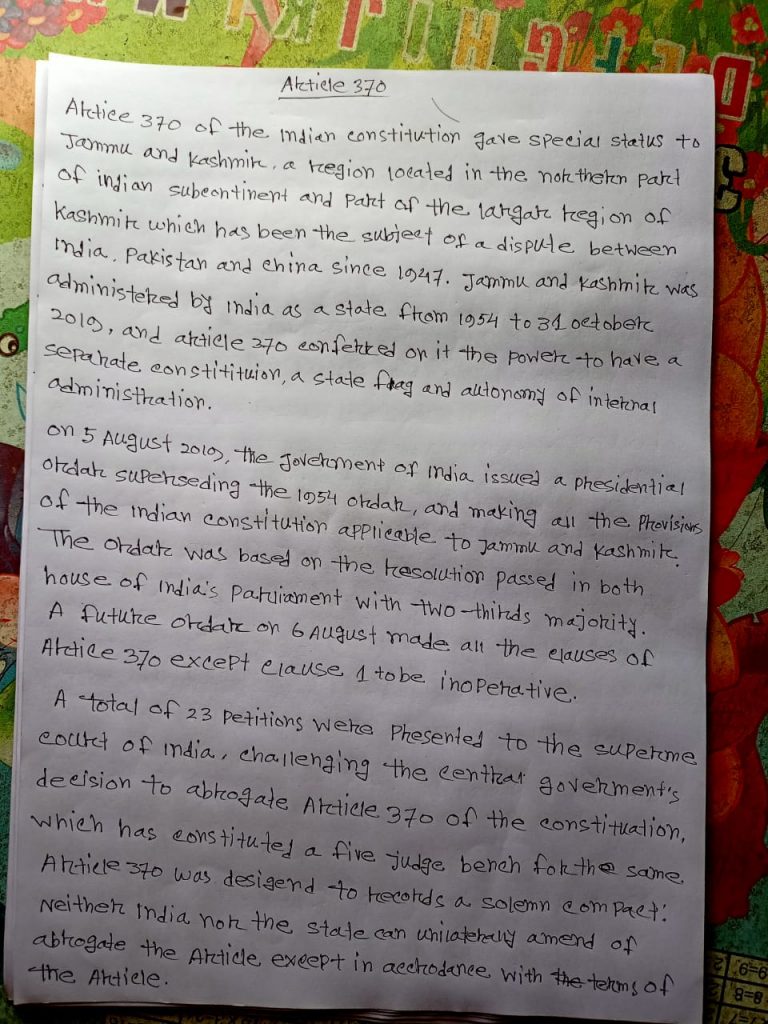 Article 370
Artice 370 of the indian constitution gave special status to
Jammu and Kashmir, a region located in the northern part
of indian subcontinent and part of the largar region of
Kashmir which has been the subject of a dispute between
india, Pakistan and china since 1947. Jammu and Kashmir was
administered by india as a state from 1954 to 31 october
2019, and article 370 conferred on it the power to have a
separate constititution, a state flag and autonomy of internal
administration.
on 5 August 2019, the goverment of india issued a presidential
ordar superseding the 1954 ordar, and making all the provisions
of the indian constitution applicable to Jammu and Kashmir.
The ordar was based on the resolution passed in both
house of india's parliament with two-thirds majority.
A future ordar on 6 August made all the clauses of
Artice 370 except clause 1 to be inoperative.
A total of 23 petitions were presented to the superme
court of india, challenging the central goverment's
decision to abrogate Article 370 of the constituation,
which has constituted a five judge bench for the same.
Article 370 was desigend to records a solemn compact.
Neither india nor the state can unilaterally amend of
abrogate the Article except in acchodance with the terms of
the Article.